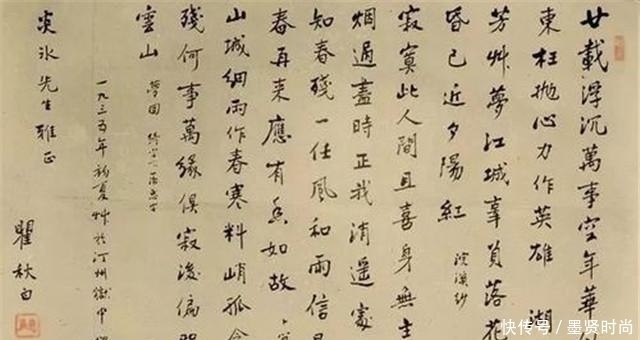 廿載浮沉萬事空年華
東枉抛心力作英雄 湖
芳艸夢江城辜負落花
昏已近夕陽紅 浣溪紗
寂寞此人間且喜身無主
烟過盡時正我消遥處
知春殘一任風和雨信
春再來應有香如故
山城細雨作春寒料峭孤衾
殘何事萬緣俱寂後偏
雲山 夢回
一九三五年初夏艸於汀州獄中
炎冰先生雅正
瞿秋白
快传号/墨贤时尚